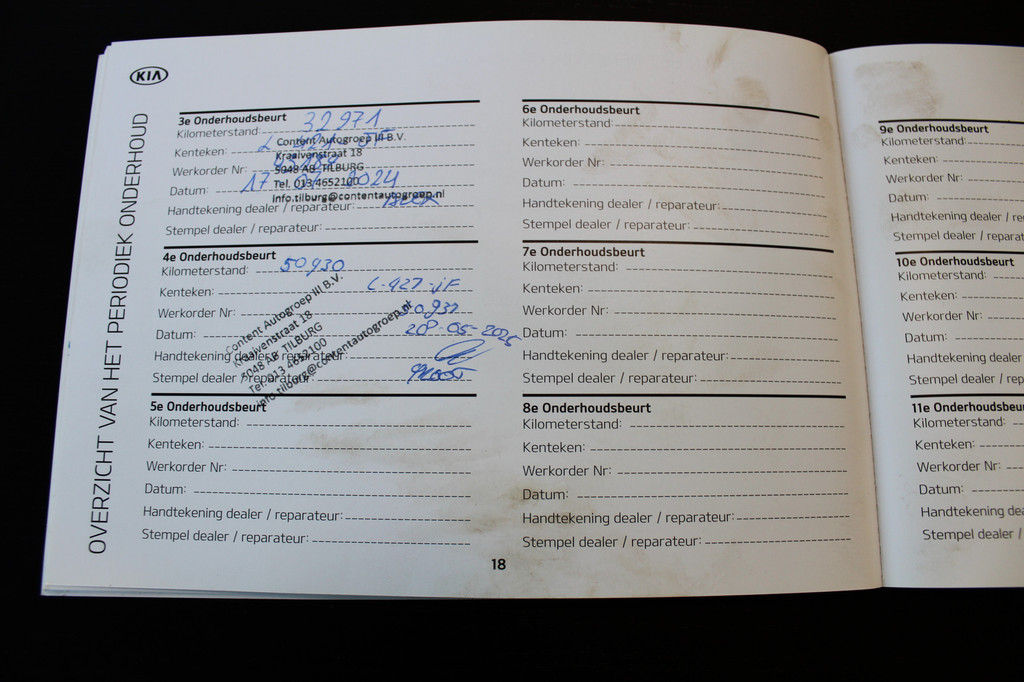 KIA
OVERZICHT VAN HET PERIODIEK ONDERHOUD
3e Onderhoudsbeurt
Kilometerstand: 32971
Kenteken:
Werkorder Nr:
Datum: 17 2024
Handtekening dealer / reparateur:
Stempel dealer / reparateur:
Content Autogroep III B.V.
Kraaivenstraat 18
5048 AB TILBURG
Tel. 013 4652100
Info.tilburg@contentautogroep.nl
4e Onderhoudsbeurt
Kilometerstand: 50930
Kenteken:
Werkorder Nr:
Datum:
Handtekening dealer / reparateur:
Stempel dealer / reparateur:
Content Autogroep III B.V.
Kraaivenstraat 18
5048 AB TILBURG
Tel. 013 4652100
info.tilburg@contentautogroep.nl
5e Onderhoudsbeurt
Kilometerstand:
Kenteken:
Werkorder Nr:
Datum:
Handtekening dealer / reparateur:
Stempel dealer / reparateur:
6e Onderhoudsbeurt
Kilometerstand:
Kenteken:
Werkorder Nr:
Datum:
Handtekening dealer / reparateur:
Stempel dealer / reparateur:
7e Onderhoudsbeurt
Kilometerstand:
Kenteken:
Werkorder Nr:
Datum:
Handtekening dealer / reparateur:
Stempel dealer / reparateur:
8e Onderhoudsbeurt
Kilometerstand:
Kenteken:
Werkorder Nr:
Datum:
Handtekening dealer / reparateur:
Stempel dealer / reparateur:
18
9e Onderhoudsbeurt
Kilometerstand:
Kenteken:
Werkorder Nr:
Datum:
Handtekening dealer / re
Stempel dealer / reparat
10e Onderhoudsbeurt
Kilometerstand:
Kenteken:
Werkorder Nr:
Datum:
Handtekening dealer
Stempel dealer / rep
11e Onderhoudsbeu
Kilometerstand:
Kenteken:
Werkorder Nr:
Datum:
Handtekening dea
Stempel dealer /